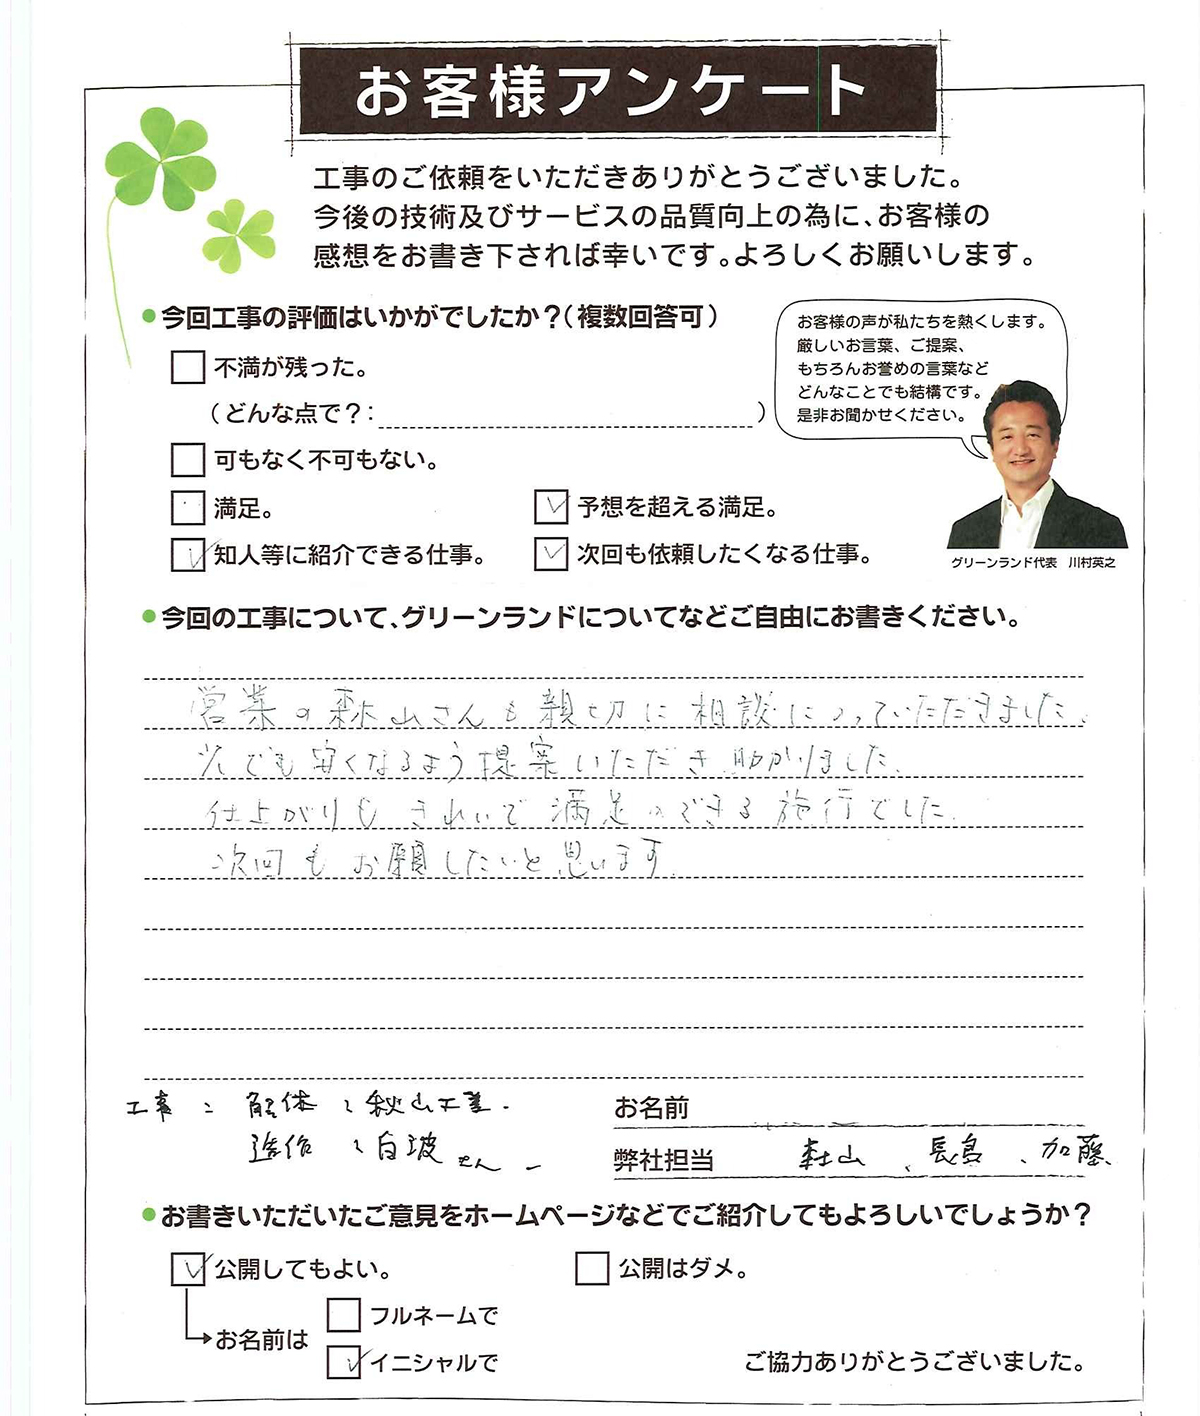 お客様アンケート
工事のご依頼をいただきありがとうございました。
今後の技術及びサービスの品質向上の為に、お客様の
感想をお書き下されば幸いです。よろしくお願いします。
●今回工事の評価はいかがでしたか？（複数回答可）
不満が残った。
（どんな点で？： ）
可もなく不可もない。
満足。
予想を超える満足。
知人等に紹介できる仕事。
次回も依頼したくなる仕事。
お客様の声が私たちを熱くします。
厳しいお言葉、ご提案、
もちろんお誉めの言葉など
どんなことでも結構です。
是非お聞かせください。
グリーンランド代表 川村英之
●今回の工事について、グリーンランドについてなどご自由にお書きください。
営業の森山さんも親切に相談にのっていただきました。
少でも安くなるよう提案いただき助かりました。
仕上がりもきれいで満足のできる施行でした。
次回もお願したいと思います。
工事 解体 秋山工業
造作 白波さん
お名前
弊社担当 森山、長島、加藤
●お書きいただいたご意見をホームページなどでご紹介してもよろしいでしょうか？
公開してもよい。
公開はダメ。
お名前は
フルネームで
イニシャルで
ご協力ありがとうございました。